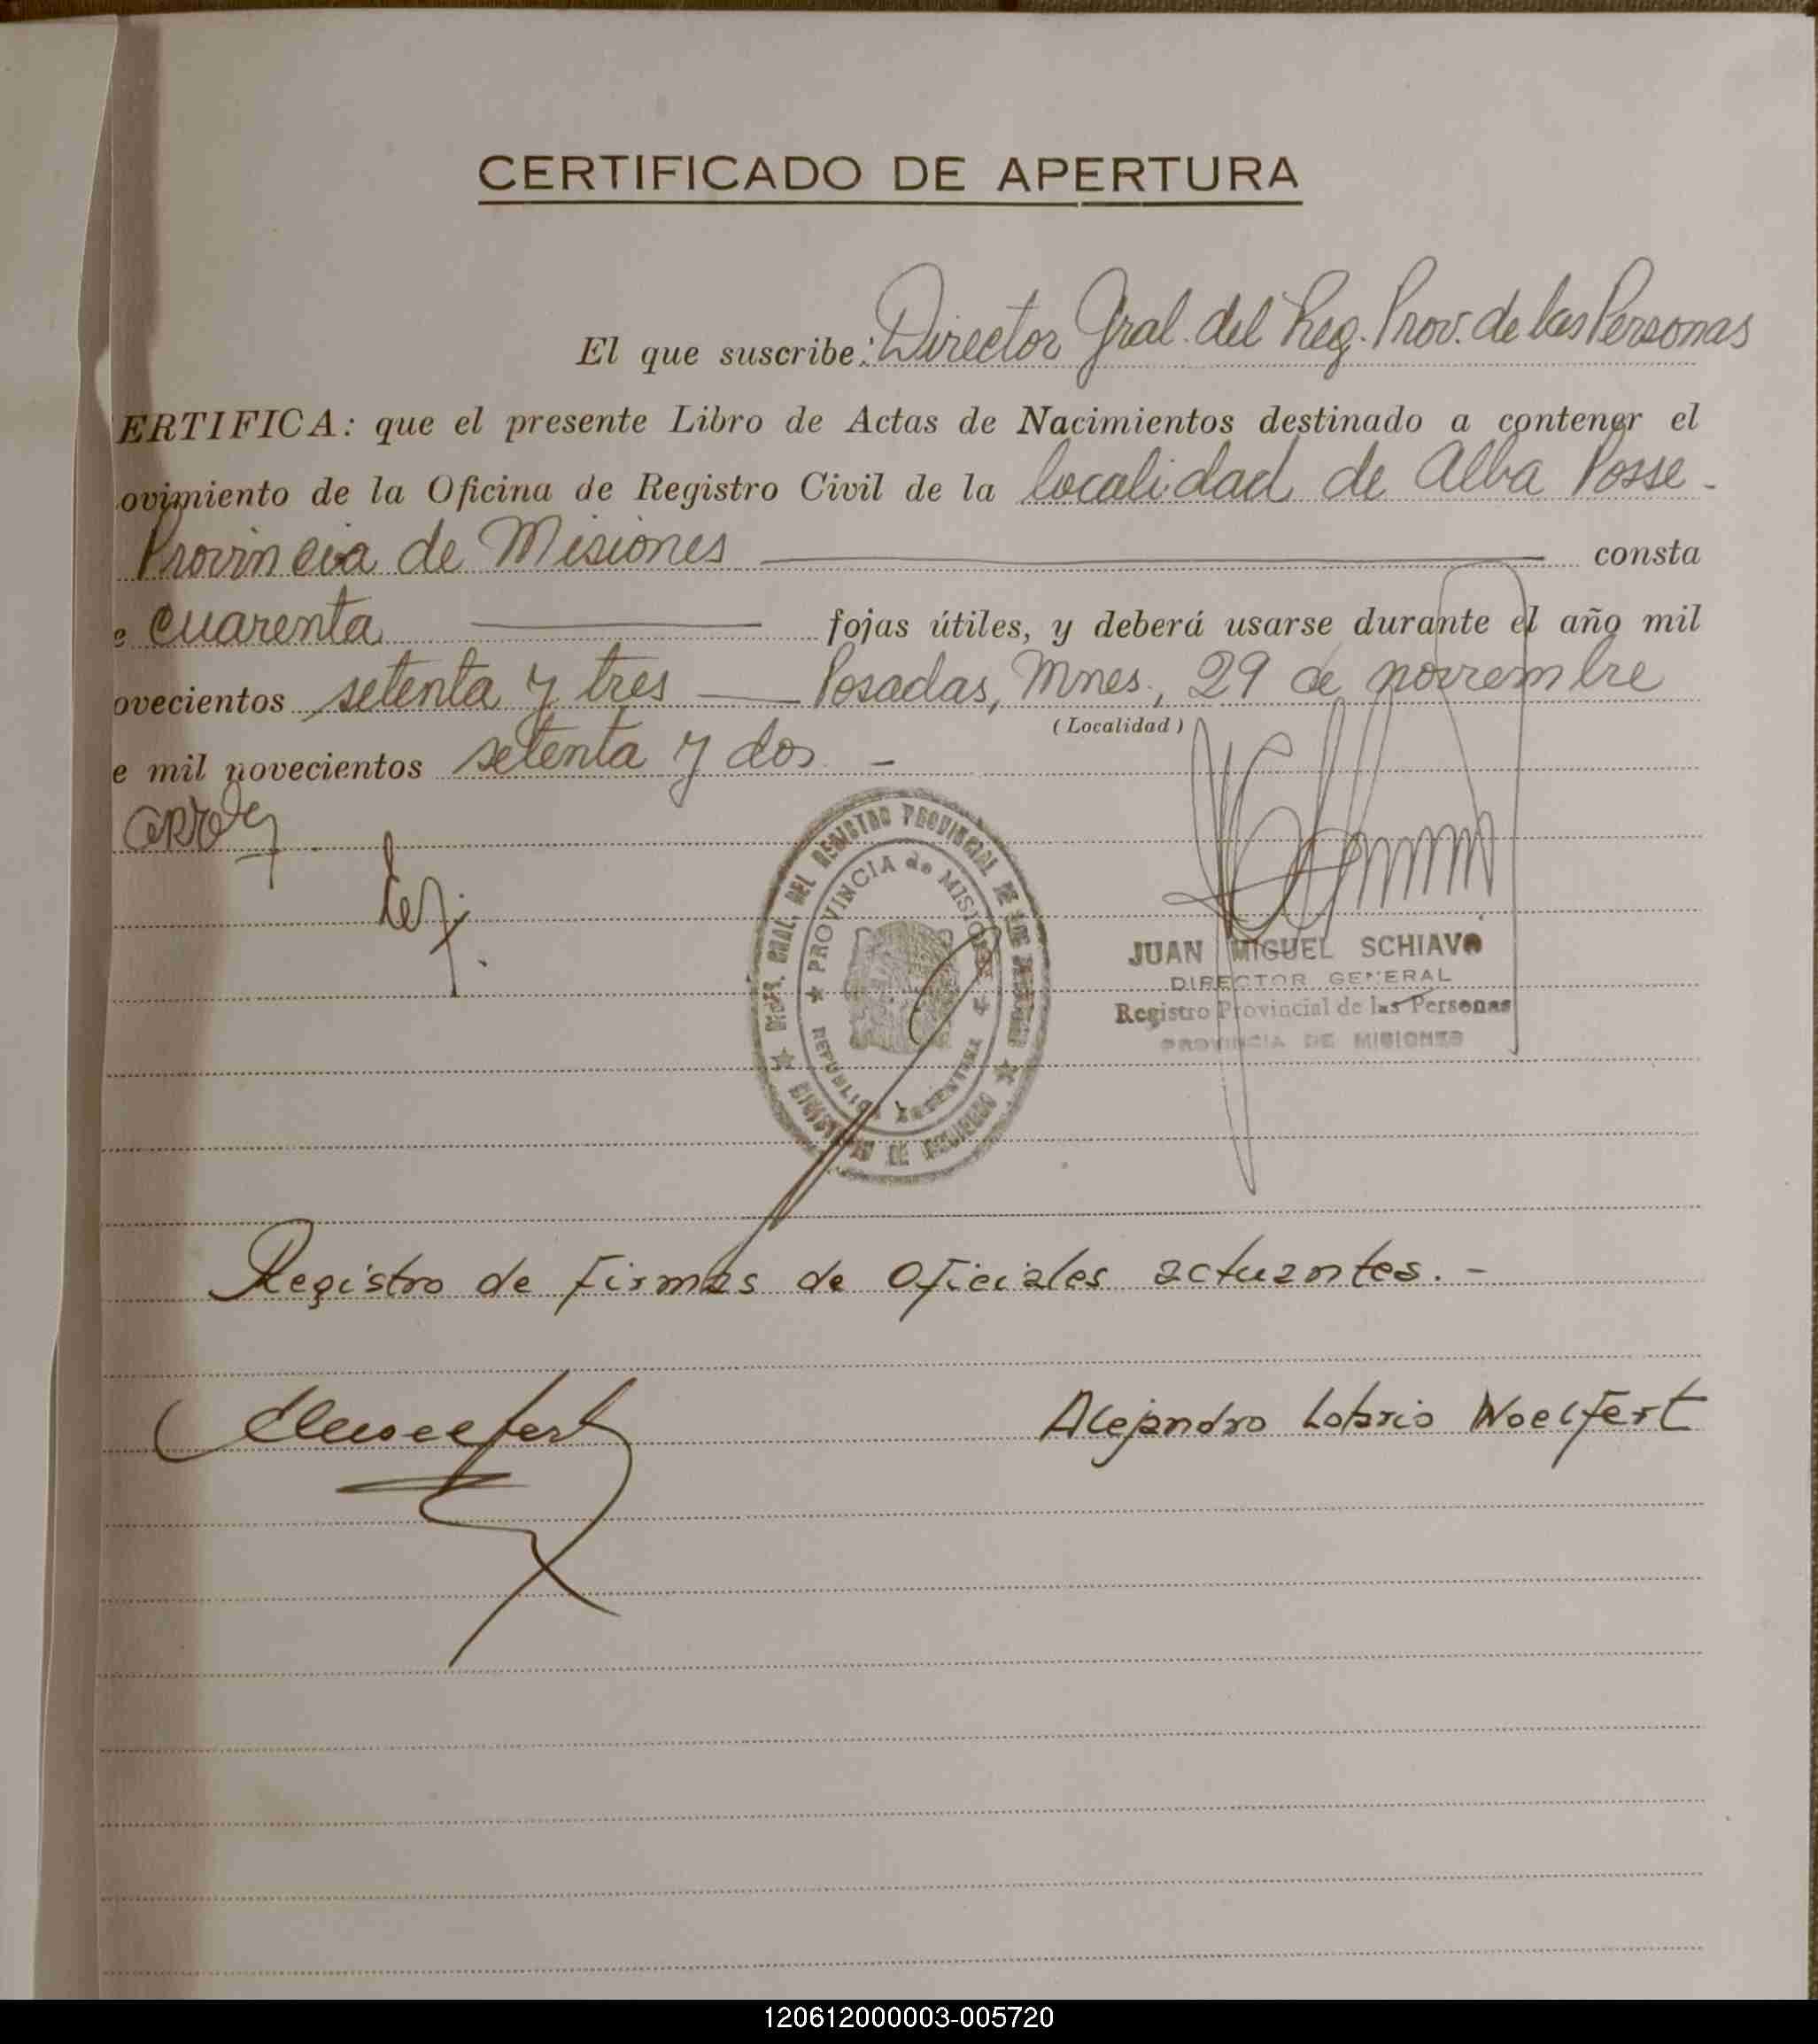 CERTIFICADO DE APERTURA
El que suscribe: Director Gral. del Reg. Prov. de las Personas
ERTIFICA: que el presente Libro de Actas de Nacimientos destinado a contener el
ovimiento de la Oficina de Registro Civil de la localidad de Alba Posse -
Provincia de Misiones consta
e cuarenta fojas útiles, y deberá usarse durante el año mil
ovecientos setenta y tres Posadas, Mnes., 29 de noviembre
(Localidad)
e mil novecientos setenta y dos. -
DIREC. GRAL. DEL REGISTRO PROVINCIAL DE LAS PERSONAS
PROVINCIA de MISIONES
REPUBLICA ARGENTINA
MINISTERIO DE GOBIERNO
JUAN MIGUEL SCHIAVO
DIRECTOR GENERAL
Registro Provincial de las Personas
PROVINCIA DE MISIONES
Registro de firmas de Oficiales actuantes. -
Alejandro Lotario Woelfert
120612000003-005720